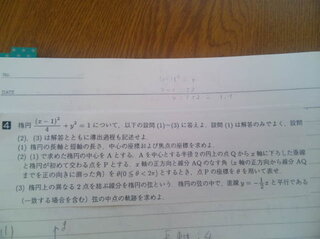 No.
DATE
4 楕円 (x-1)²/4 + y² = 1 について，以下の設問 (1)~(3) に答えよ．設問 (1) は解答のみでよく，設問
(2)，(3) は解答とともに導出過程も記述せよ．
(1) 楕円の長軸と短軸の長さ，中心の座標および焦点の座標を求め，
(2) (1) で求めた楕円の中心を A とする．A を中心とする半径 2 の円上の点 Q から x 軸に下ろした垂線
と楕円が初めて交わる点を P とする．x 軸の正方向と線分 AQ のなす角 (x 軸の正方向から線分 AQ
までを正の向きに測った角) を θ(0 ≦ θ < 2π) とするとき，点 P の座標を θ を用いて表せ．
(3) 楕円上の異なる 2 点を結ぶ線分を楕円の弦という．楕円の弦の中で，直線 y = -1/2 x と平行である
(一致する場合を含む) 弦の中点の軌跡を求めよ．